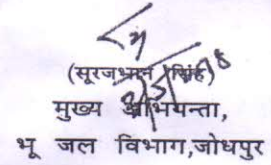 (सूरजभान सिंह)
मुख्य अभियन्ता,
भू जल विभाग,जोधपुर